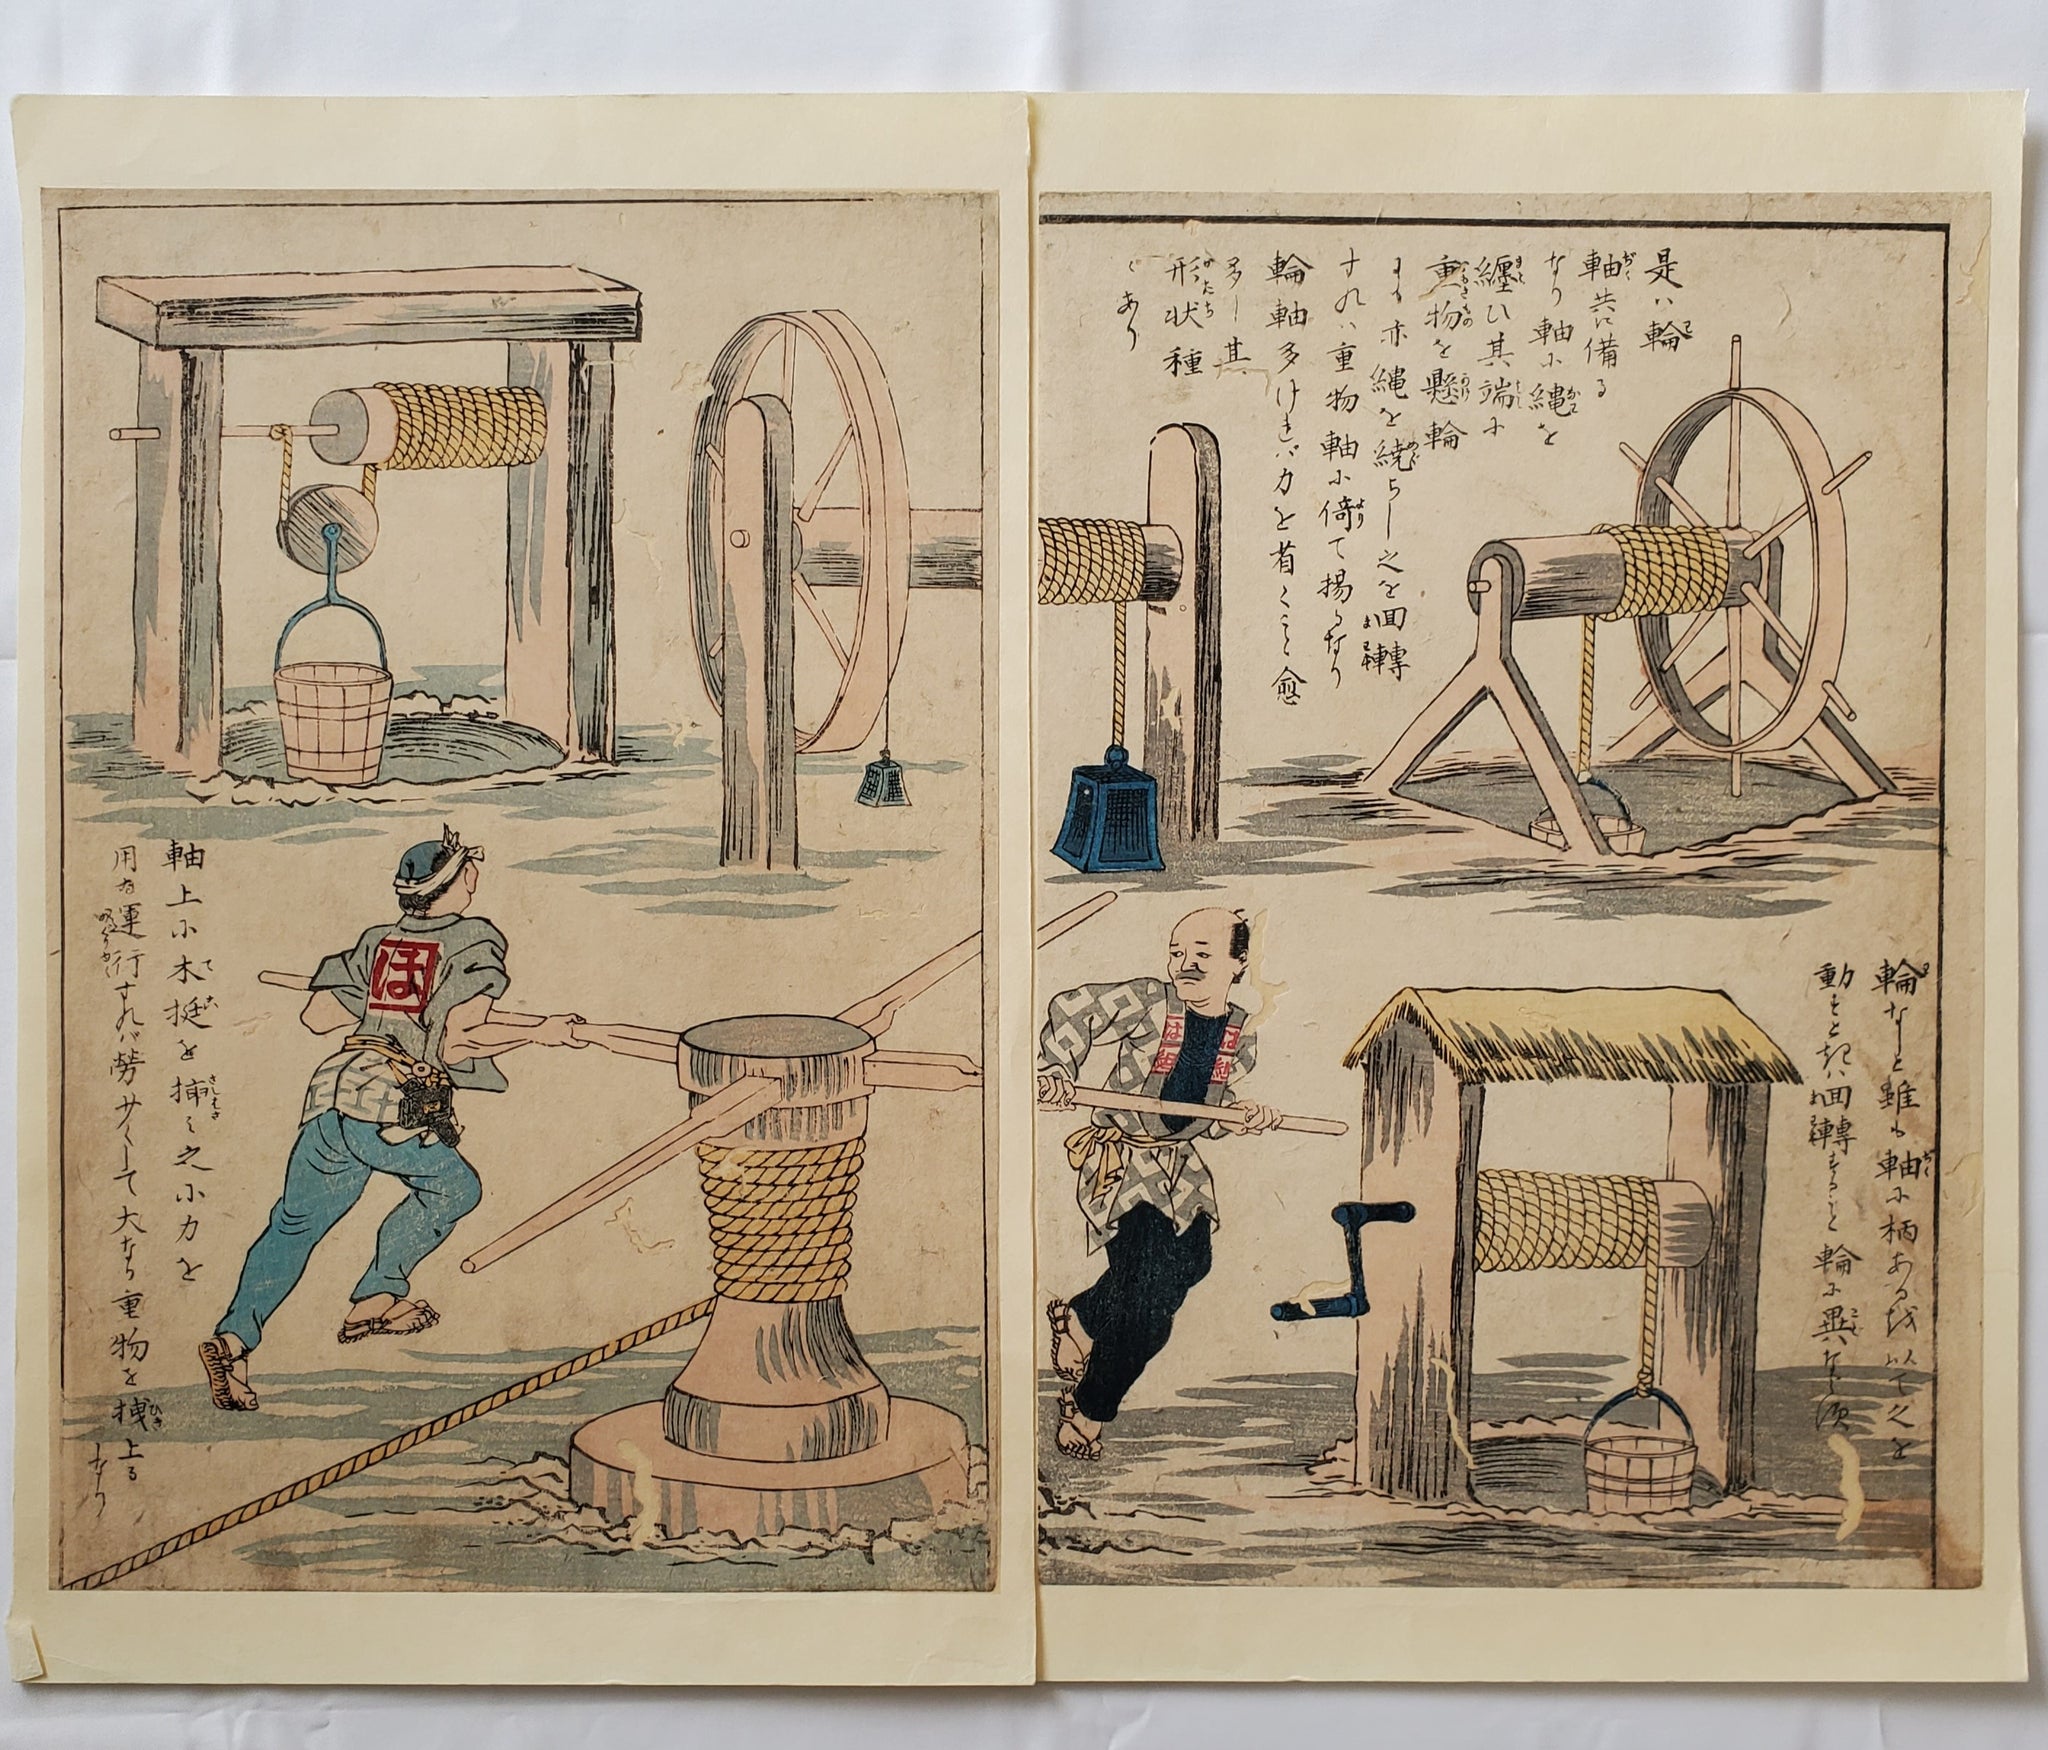 是ハ輪
軸共に備る
なり軸に縄を
纏ひ其端に
重物を懸輪
にも亦縄を繞らし之を回轉
すれハ重物軸に倚て揚るなり
輪軸多けれバ力を省くこと愈
多し其
形状種
〻あり
輪なしと雖も軸に柄あるを以て之を
動すときハ回轉すること輪に異ならず
軸上に木挺を挿み之に力を
用ゐ運行すれバ労少くして大なる重物を拽上る
なり
ほ
は組
は組